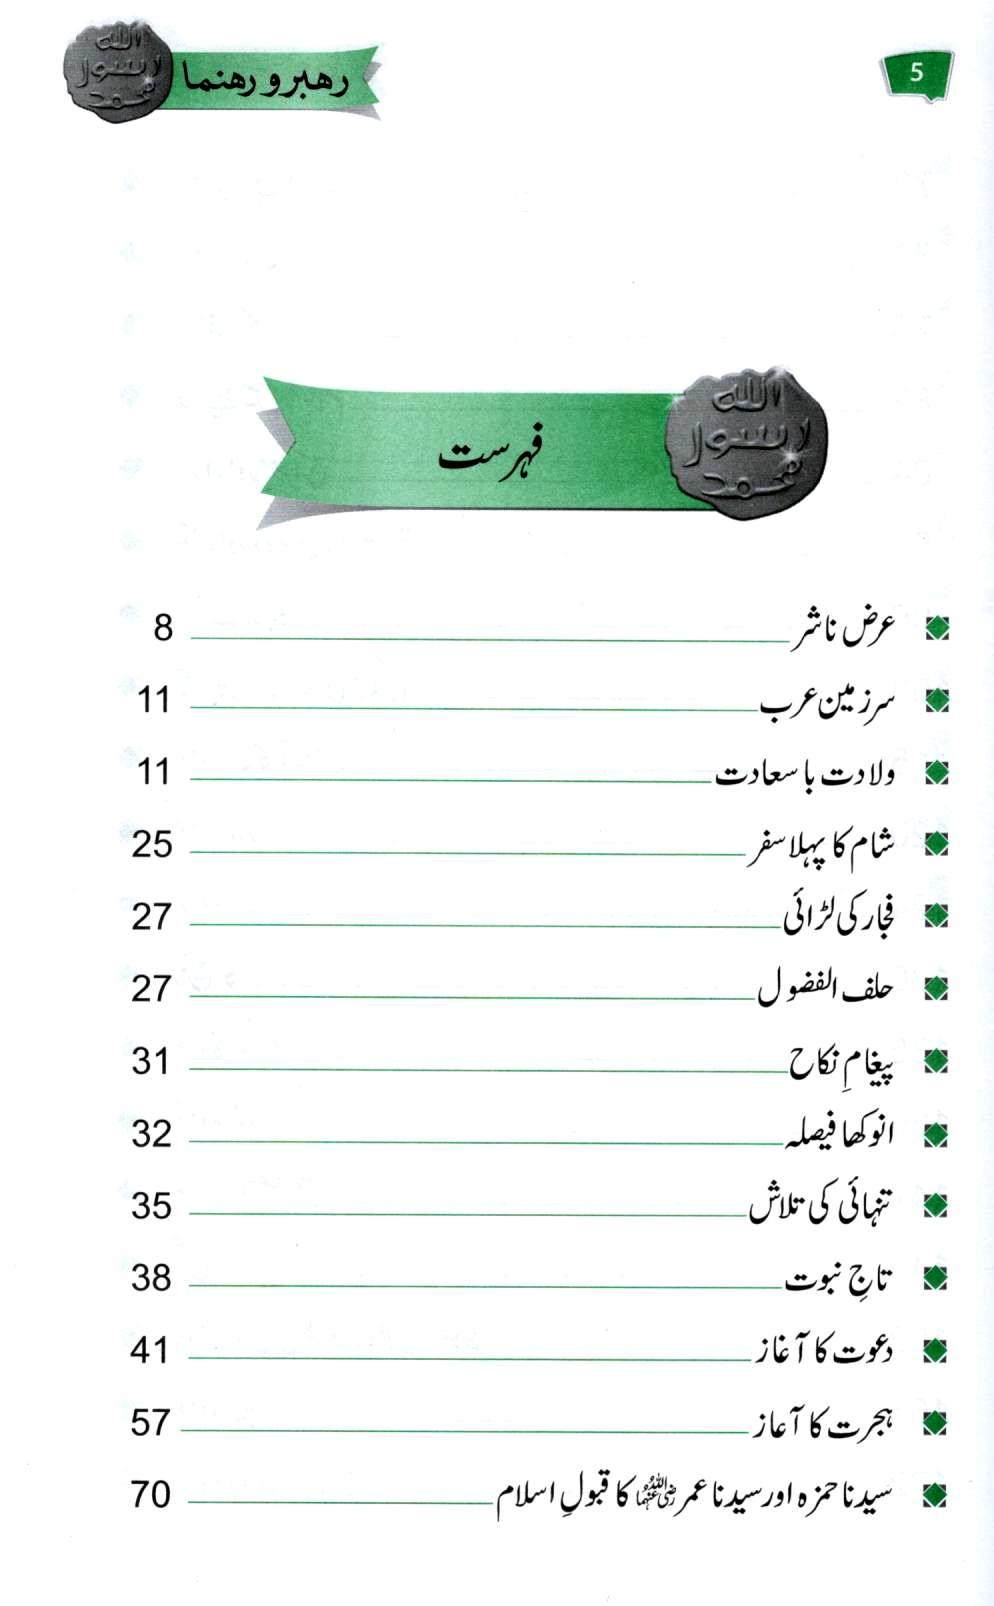 5
رهبر و رهنما
الله
رسول
محمد
فہرست
الله
رسول
محمد
عرض ناشر 8
سرزمین عرب 11
ولادت باسعادت 11
شام کا پہلا سفر 25
فجار کی لڑائی 27
حلف الفضول 27
پیغامِ نکاح 31
انوکھا فیصلہ 32
تنہائی کی تلاش 35
تاجِ نبوت 38
دعوت کا آغاز 41
ہجرت کا آعاز 57
سیدنا حمزہ اور سیدنا عمر رضی اللہ عنہما کا قبولِ اسلام 70